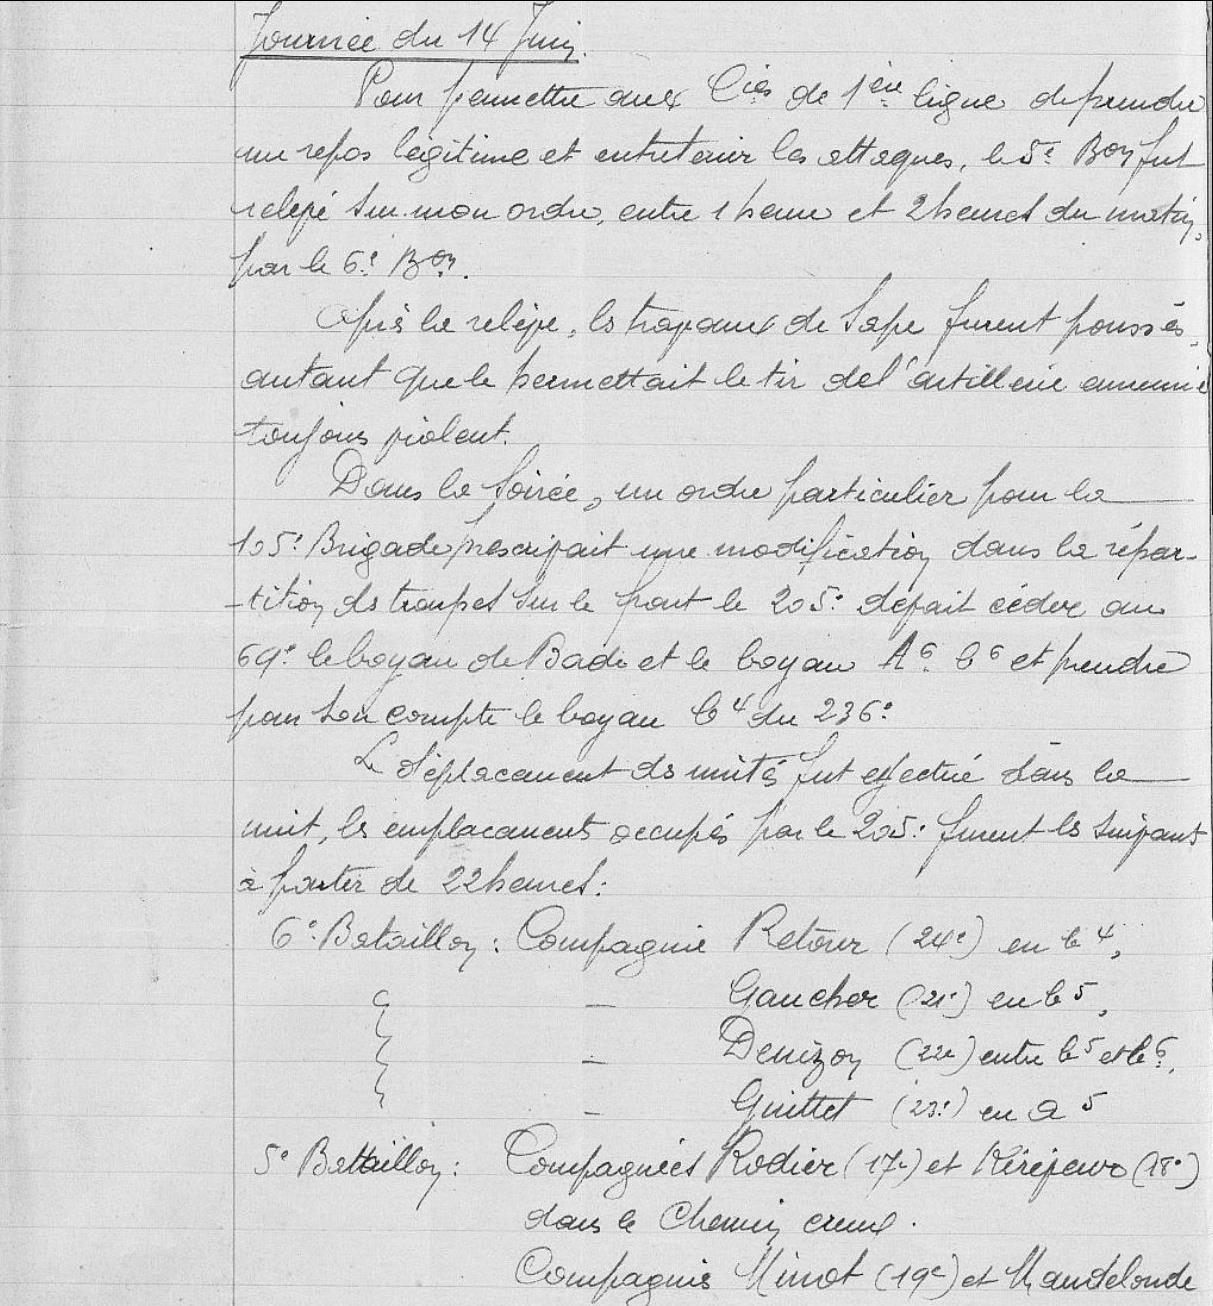 Journée du 14 Juin.
Pour permettre aux Cies de 1ère ligne de prendre
un repos légitime et entretenir les attaques, le 5e Bon fut
relevé sur mon ordre, entre 1 heure et 2 heures du matin,
par le 6e Bon.
Après la relève, les travaux de sape furent poussés,
autant que le permettait le tir de l'artillerie ennemie
toujours violent.
Dans la soirée, un ordre particulier pour la
105e Brigade prescrivait une modification dans la répar-
-tition des troupes sur le front le 205e devait céder au
69e le boyau de Bade et le boyau A6 b6 et prendre
pour son compte le boyau b4 du 236e
Le déplacement des unités fut effectué dans la
nuit, les emplacements occupés par le 205e furent les suivants
à partir de 22 heures :
6e Bataillon : Compagnie Retour (24e) en b4,
— Gaucher (21e) en b5,
— Denizon (22e) entre b5 et b6,
— Guittet (23e) en a5
5e Bataillon : Compagnies Rodier (17e) et Kéréjeur (18e)
dans le Chemin creux.
Compagnies Minot (19e) et Mandelonde